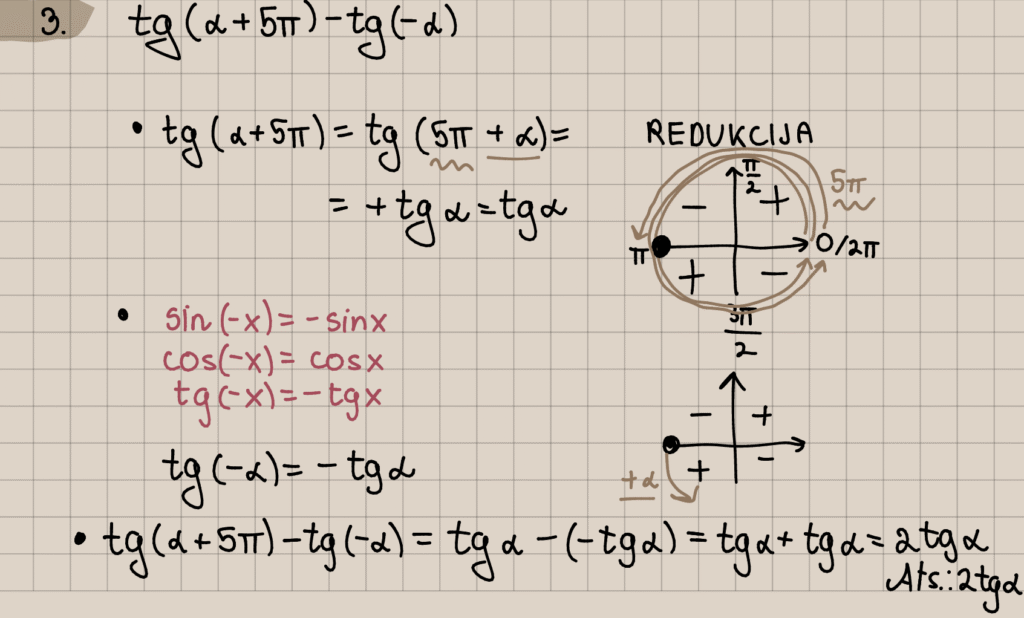 3. tg(α+5π)-tg(-α)
• tg(α+5π)= tg(5π + α)=
= +tgα=tgα
REDUKCIJA
π/2
- +
5π
π
0/2π
+ -
3π/2
• sin(-x)= -sinx
cos(-x)= cosx
tg(-x)=-tgx
- +
+ -
+α
tg(-α)= -tgα
• tg(α+5π)-tg(-α)= tgα-(-tgα)= tgα+tgα=2tgα
Ats.:2tgα